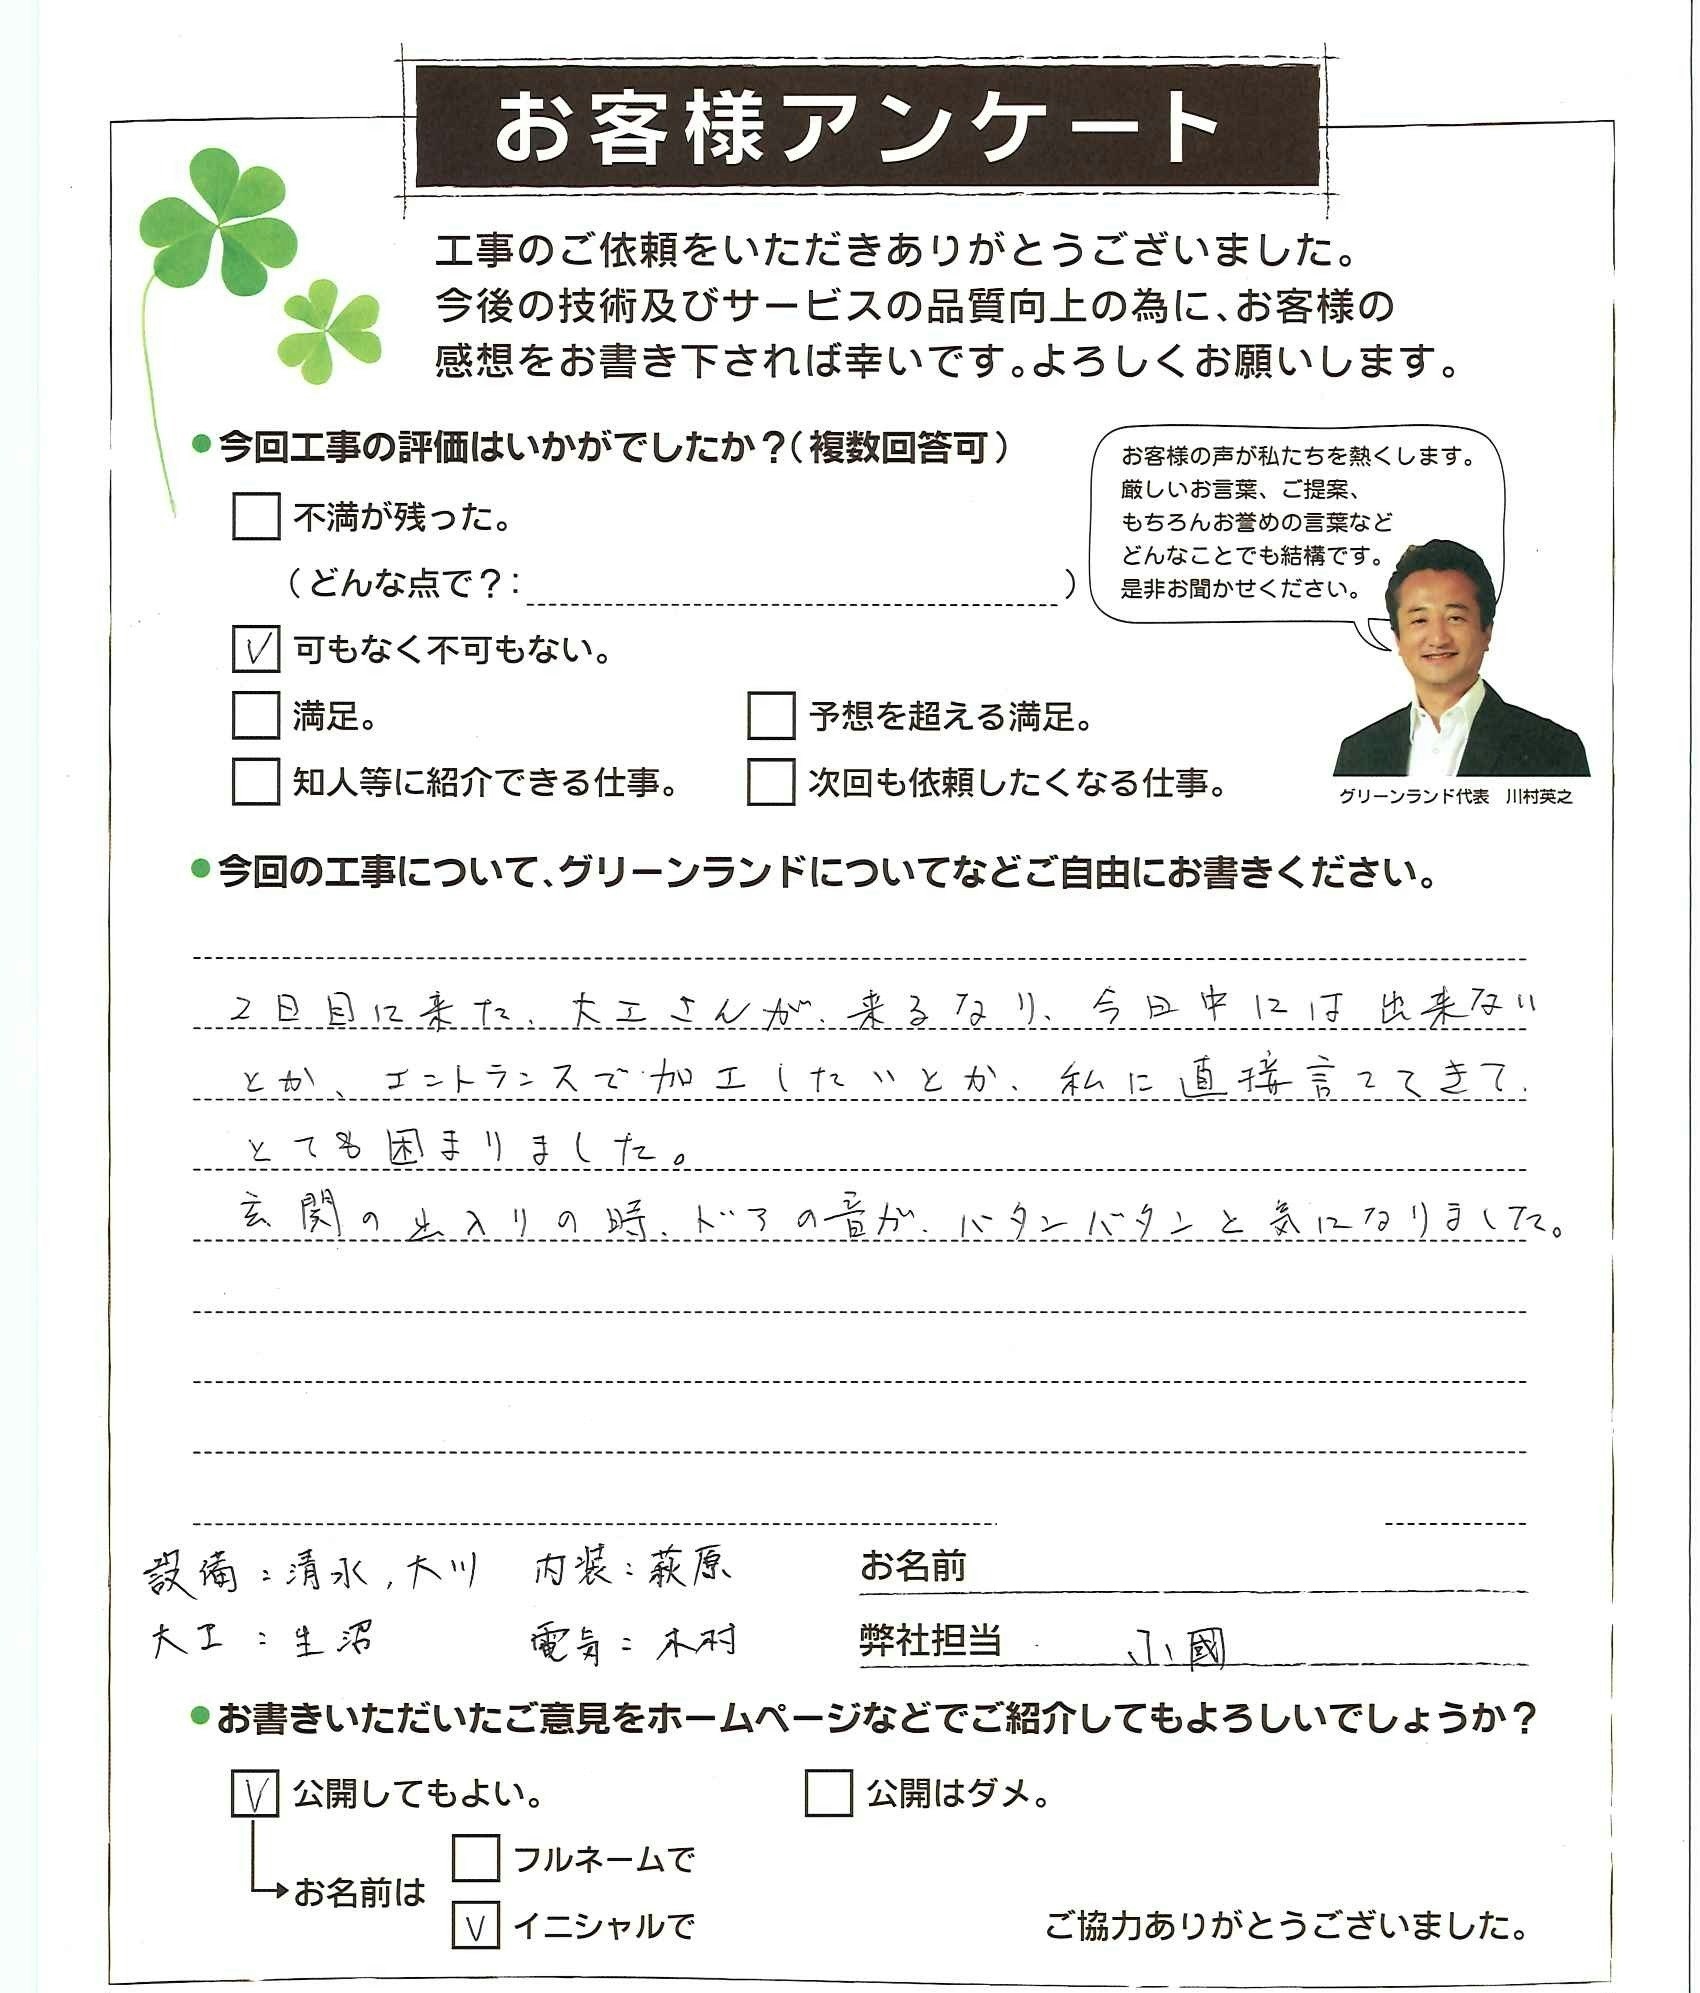 お客様アンケート
工事のご依頼をいただきありがとうございました。
今後の技術及びサービスの品質向上の為に、お客様の
感想をお書き下されば幸いです。よろしくお願いします。
●今回工事の評価はいかがでしたか？（複数回答可）
不満が残った。
（どんな点で？：　）
V 可もなく不可もない。
満足。
予想を超える満足。
知人等に紹介できる仕事。
次回も依頼したくなる仕事。
お客様の声が私たちを熱くします。
厳しいお言葉、ご提案、
もちろんお誉めの言葉など
どんなことでも結構です。
是非お聞かせください。
グリーンランド代表　川村英之
●今回の工事について、グリーンランドについてなどご自由にお書きください。
2日目に来た、大工さんが、来るなり、今日中には出来ない
とか、エントランスで加工したいとか、私に直接言ってきて、
とても困まりました。
玄関の出入りの時、ドアの音が、バタンバタンと気になりました。
設備：清水，大川　内装：萩原
大工：生沼　電気：木村
お名前
弊社担当　小國
●お書きいただいたご意見をホームページなどでご紹介してもよろしいでしょうか？
V 公開してもよい。
公開はダメ。
お名前は
フルネームで
V イニシャルで
ご協力ありがとうございました。